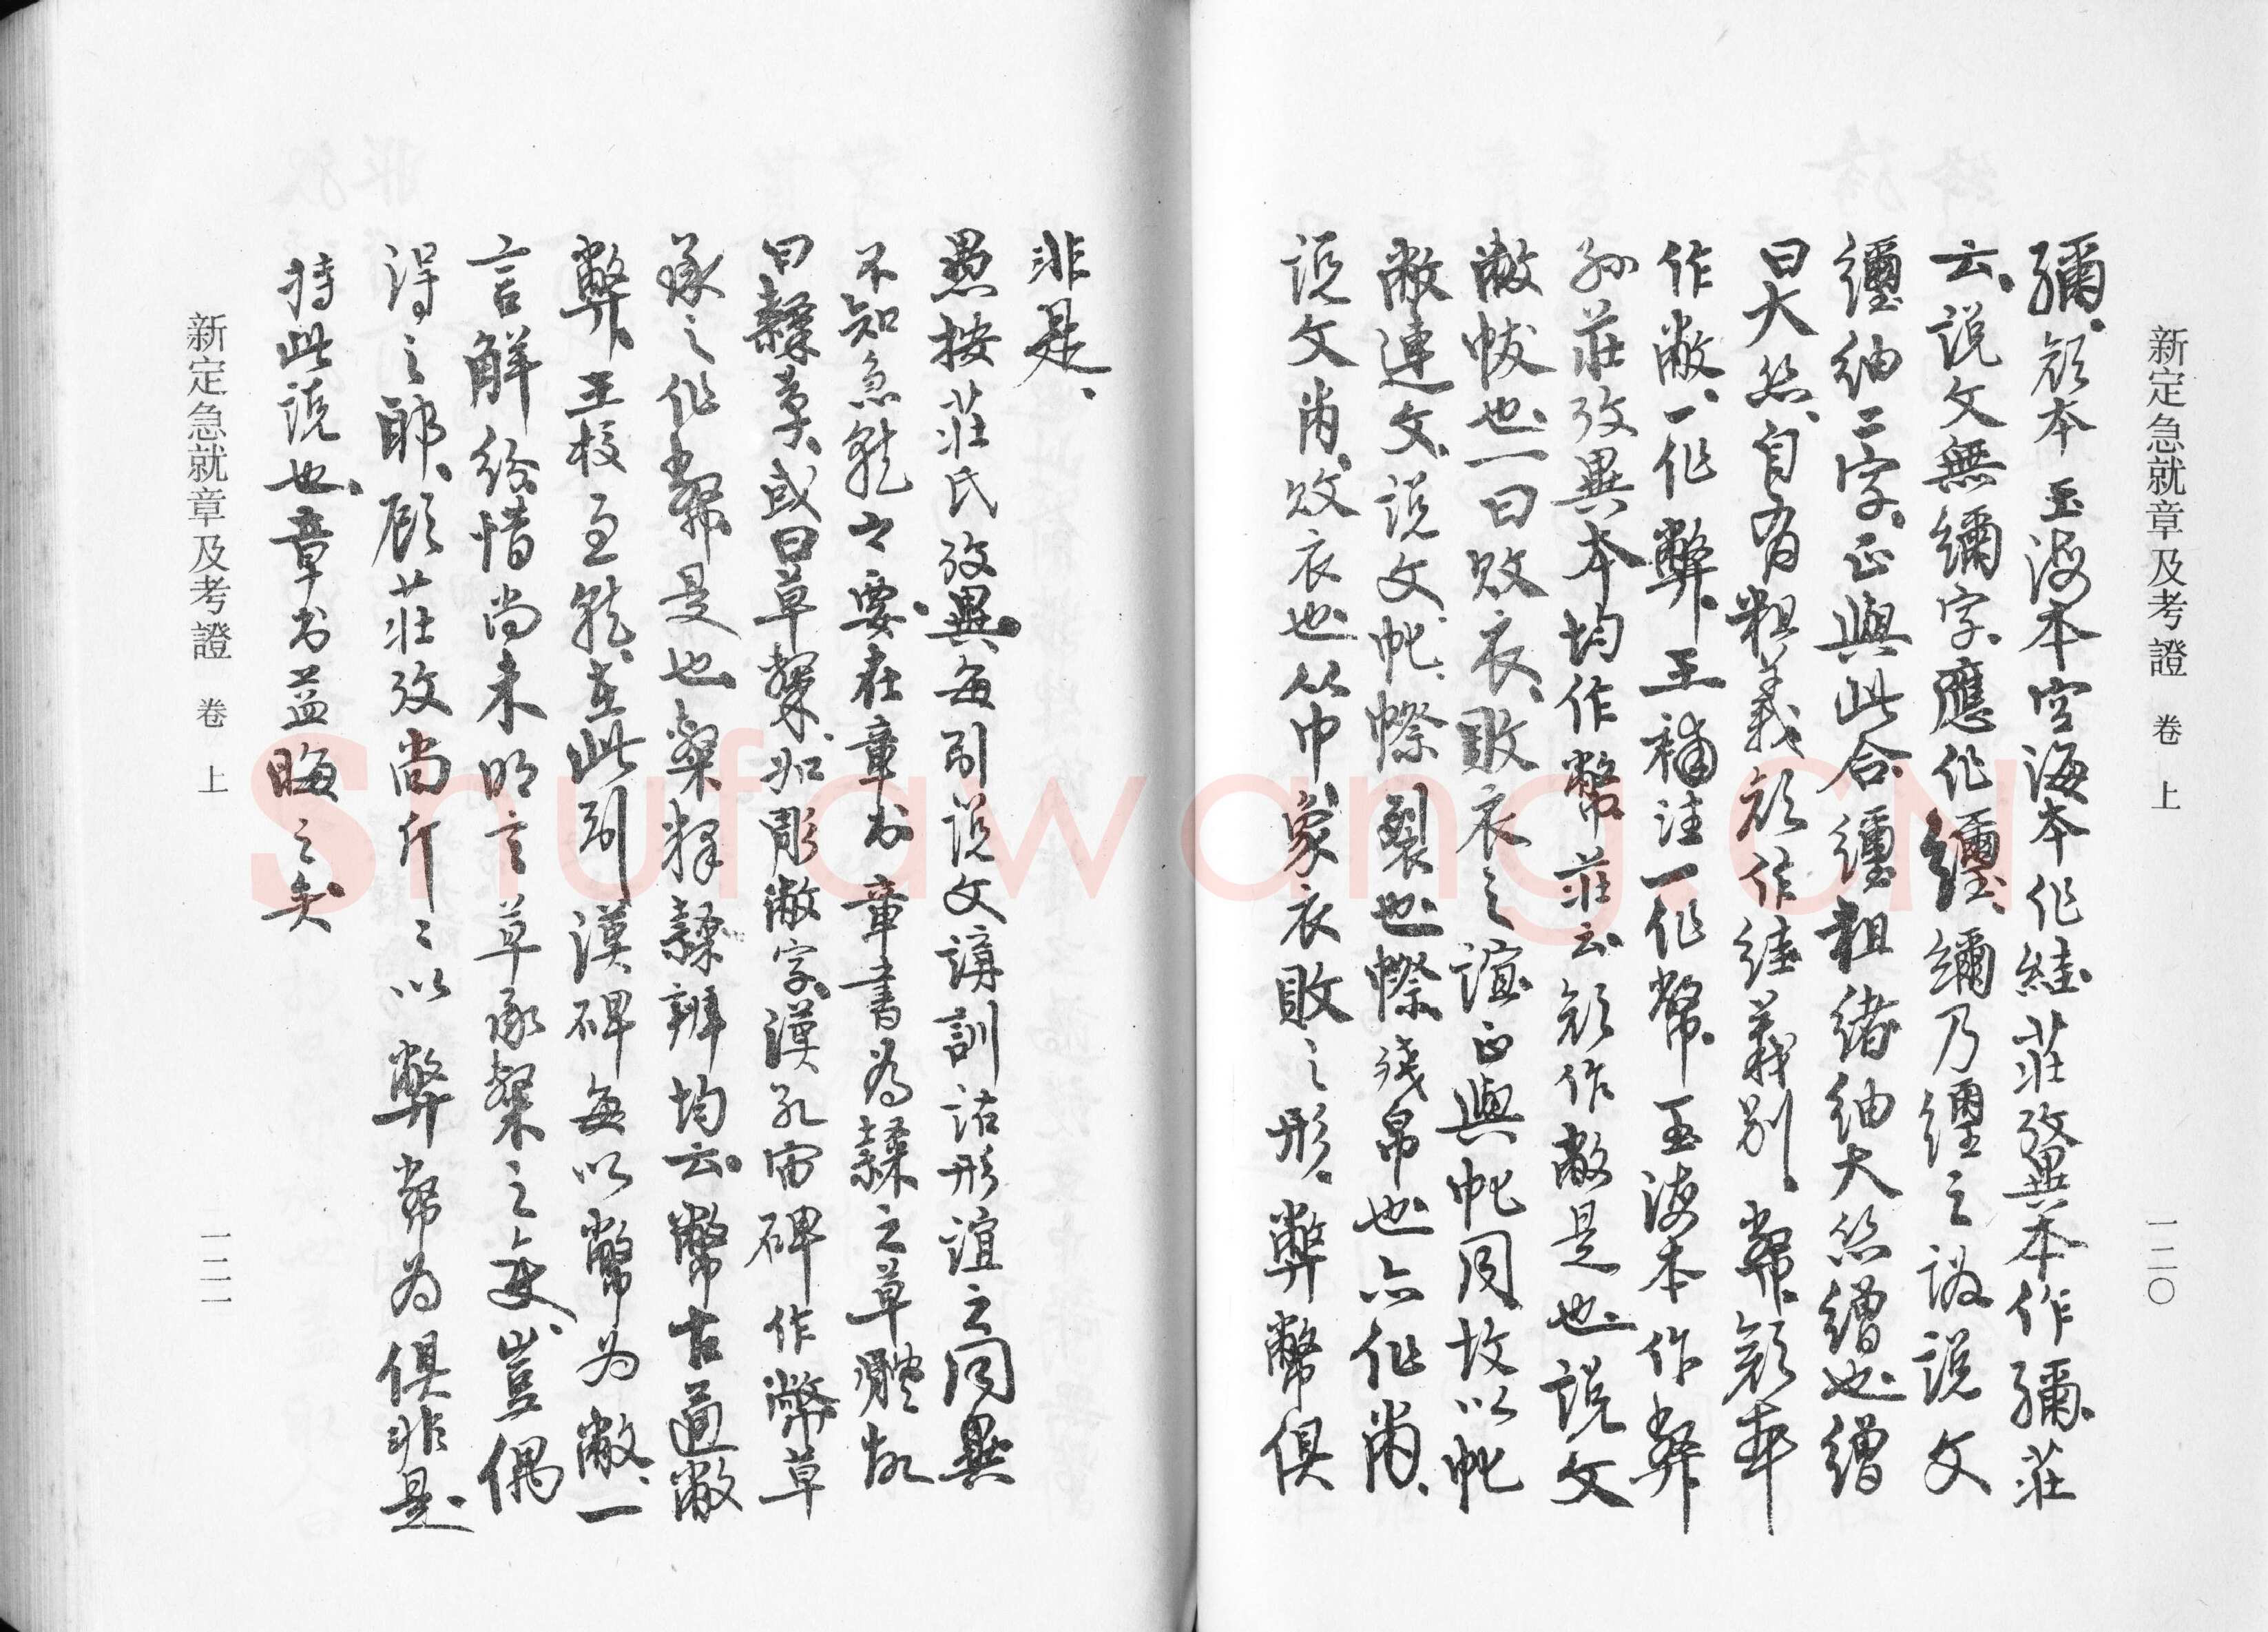 新定急就章及考證 卷上
一二〇
彌、顏本玉海本空海本作絓、莊攷異本作彌、莊
云、說文無繝字、應作纆、繝乃纆之譌、說文
纆紬二字、正與此合、纆粗緒紬大絲繒也、繒
曰大絲、自有粗義、顏作絓義別、幣、顏本
作敝、一作弊、王補注一作幣、玉海本作弊
孫莊攷異本均作幣、莊云顏作敝是也、說文
敝帗也、一曰敗衣、敗衣之誼正與帊同、故以帊
敝連文、說文帊、幣裂也、幣殘帛也、亦作㡀、
說文㡀、敗衣也、从巾、象衣敗之形、弊幣俱
非是、
愚按莊氏攷異、每引說文講訓詁形誼之同異
不知急就之要、在章书、章書為隸之草體、故
曰隸章、或曰草槧、如彫敝字、漢孔宙碑作幣草
承之作幣是也、槧釋隸辨均云、幣古通敝
弊、王校急就、在此引漢碑每以幣為敝、一
言解紛、惜尚未明言草承槧之变、豈偶
得之耶、顧莊攷尚斤斤以弊幣為俱非是、
持此說也、章书益晦之矣
新定急就章及考證 卷上
一二一
Shufawang.CN